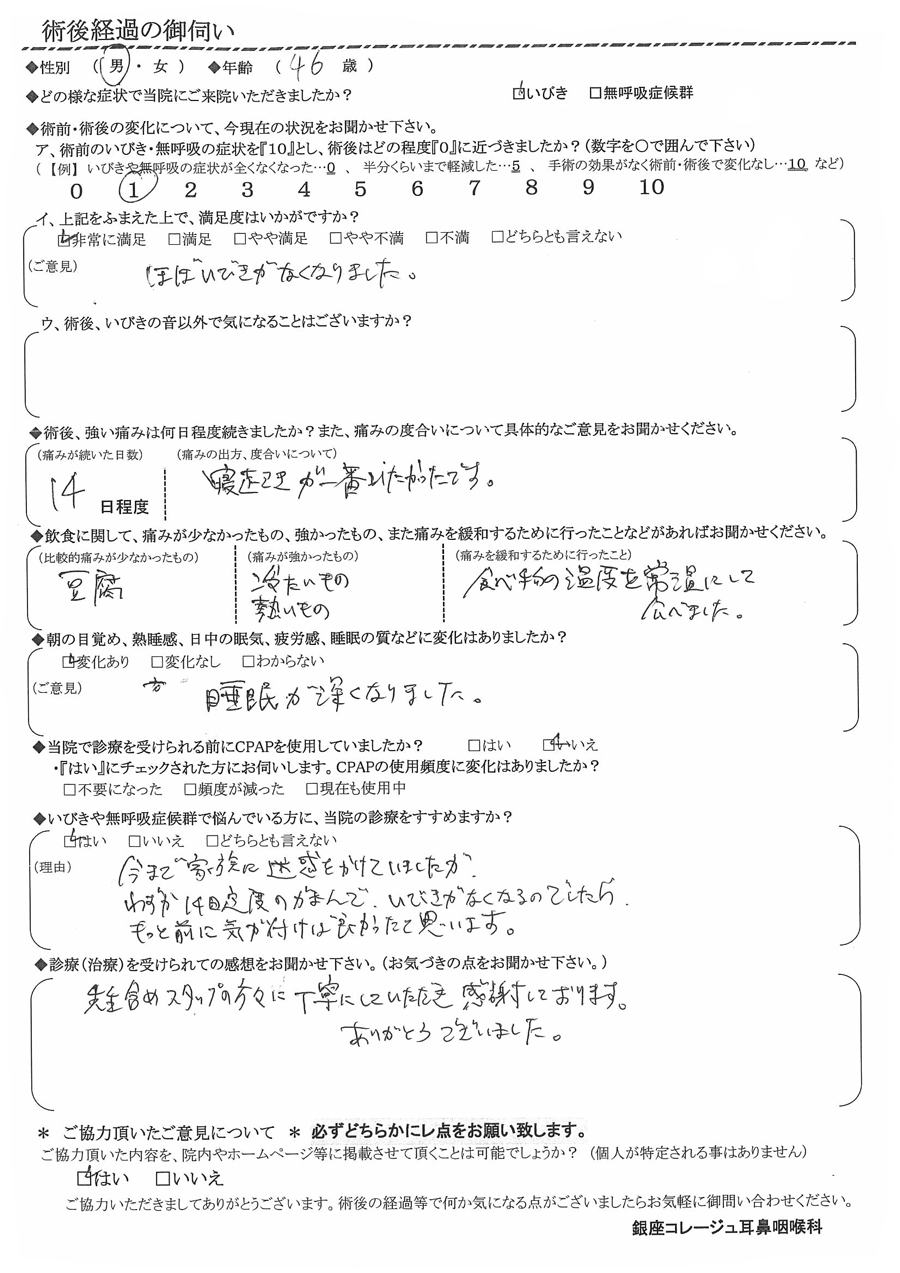 術後経過の御伺い
◆性別 （ 男 ・ 女 ） ◆年齢 （ 46 歳 ）
◆どの様な症状で当院にご来院いただきましたか？ ☑いびき □無呼吸症候群
◆術前・術後の変化について、今現在の状況をお聞かせ下さい。
ア、術前のいびき・無呼吸の症状を『10』とし、術後はどの程度『0』に近づきましたか？（数字を○で囲んで下さい）
（【例】 いびきや無呼吸の症状が全くなくなった…0 、 半分くらいまで軽減した…5 、 手術の効果がなく術前・術後で変化なし…10 など）
0 1 2 3 4 5 6 7 8 9 10
イ、上記をふまえた上で、満足度はいかがですか？
☑非常に満足 □満足 □やや満足 □やや不満 □不満 □どちらとも言えない
（ご意見） ほぼいびきがなくなりました。
ウ、術後、いびきの音以外で気になることはございますか？
◆術後、強い痛みは何日程度続きましたか？また、痛みの度合いについて具体的なご意見をお聞かせください。
（痛みが続いた日数） （痛みの出方、度合いについて）
14 日程度 寝起きが一番いたかったです。
◆飲食に関して、痛みが少なかったもの、強かったもの、また痛みを緩和するために行ったことなどがあればお聞かせください。
（比較的痛みが少なかったもの） （痛みが強かったもの） （痛みを緩和するために行ったこと）
豆腐 冷たいもの 食べ物の温度を常温にして
熱いもの 食べました。
◆朝の目覚め、熟睡感、日中の眠気、疲労感、睡眠の質などに変化はありましたか？
☑変化あり □変化なし □わからない
（ご意見） 睡眠が深くなりました。
◆当院で診療を受けられる前にCPAPを使用していましたか？ □はい ☑いいえ
・『はい』にチェックされた方にお伺いします。CPAPの使用頻度に変化はありましたか？
□不要になった □頻度が減った □現在も使用中
◆いびきや無呼吸症候群で悩んでいる方に、当院の診療をすすめますか？
☑はい □いいえ □どちらとも言えない
（理由） 今まで家族に迷惑をかけていましたが、
わずか14日定度のがまんで、いびきがなくなるのでしたら、
もっと前に気が付けば良かったと思います。
◆診療（治療）を受けられての感想をお聞かせ下さい。（お気づきの点をお聞かせ下さい。）
先生含めスタッフの方々に丁寧にしていただき感謝しております。
ありがとうございました。
＊ ご協力頂いたご意見について ＊ 必ずどちらかにレ点をお願い致します。
ご協力頂いた内容を、院内やホームページ等に掲載させて頂くことは可能でしょうか？ （個人が特定される事はありません）
☑はい □いいえ
ご協力いただきましてありがとうございます。術後の経過等で何か気になる点がございましたらお気軽に御問い合わせください。
銀座コレージュ耳鼻咽喉科